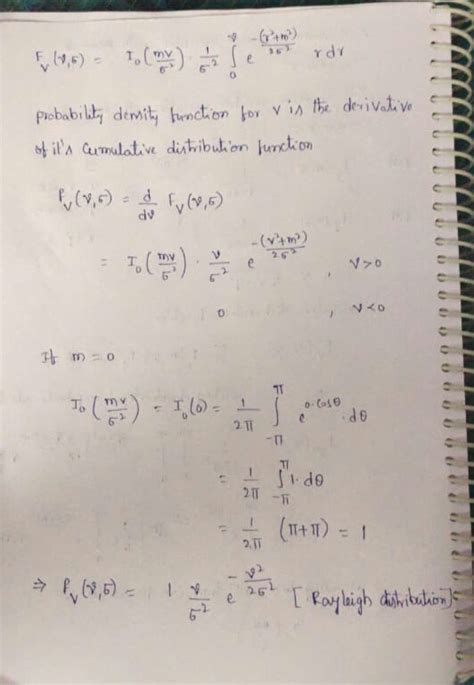 F_V(v,σ) = I₀(mv/σ²) · 1/σ² ∫₀^v e^(-(r²+m²)/2σ²) r dr
probability density function for v is the derivative
of it's cumulative distribution function
P_V(v,σ) = d/dv F_V(v,σ)
= I₀(mv/σ²) · v/σ² e^(-(v²+m²)/2σ²) , v>0
0 , v<0
If m=0
I₀(mv/σ²) = I₀(0) = 1/2π ∫_{-π}^{π} e^(0·cosθ) · dθ
= 1/2π ∫_{-π}^{π} 1· dθ
= 1/2π (π+π) = 1
⇒ P_V(v,σ) = 1 v/σ² e^(-v²/2σ²) [Rayleigh distribution]